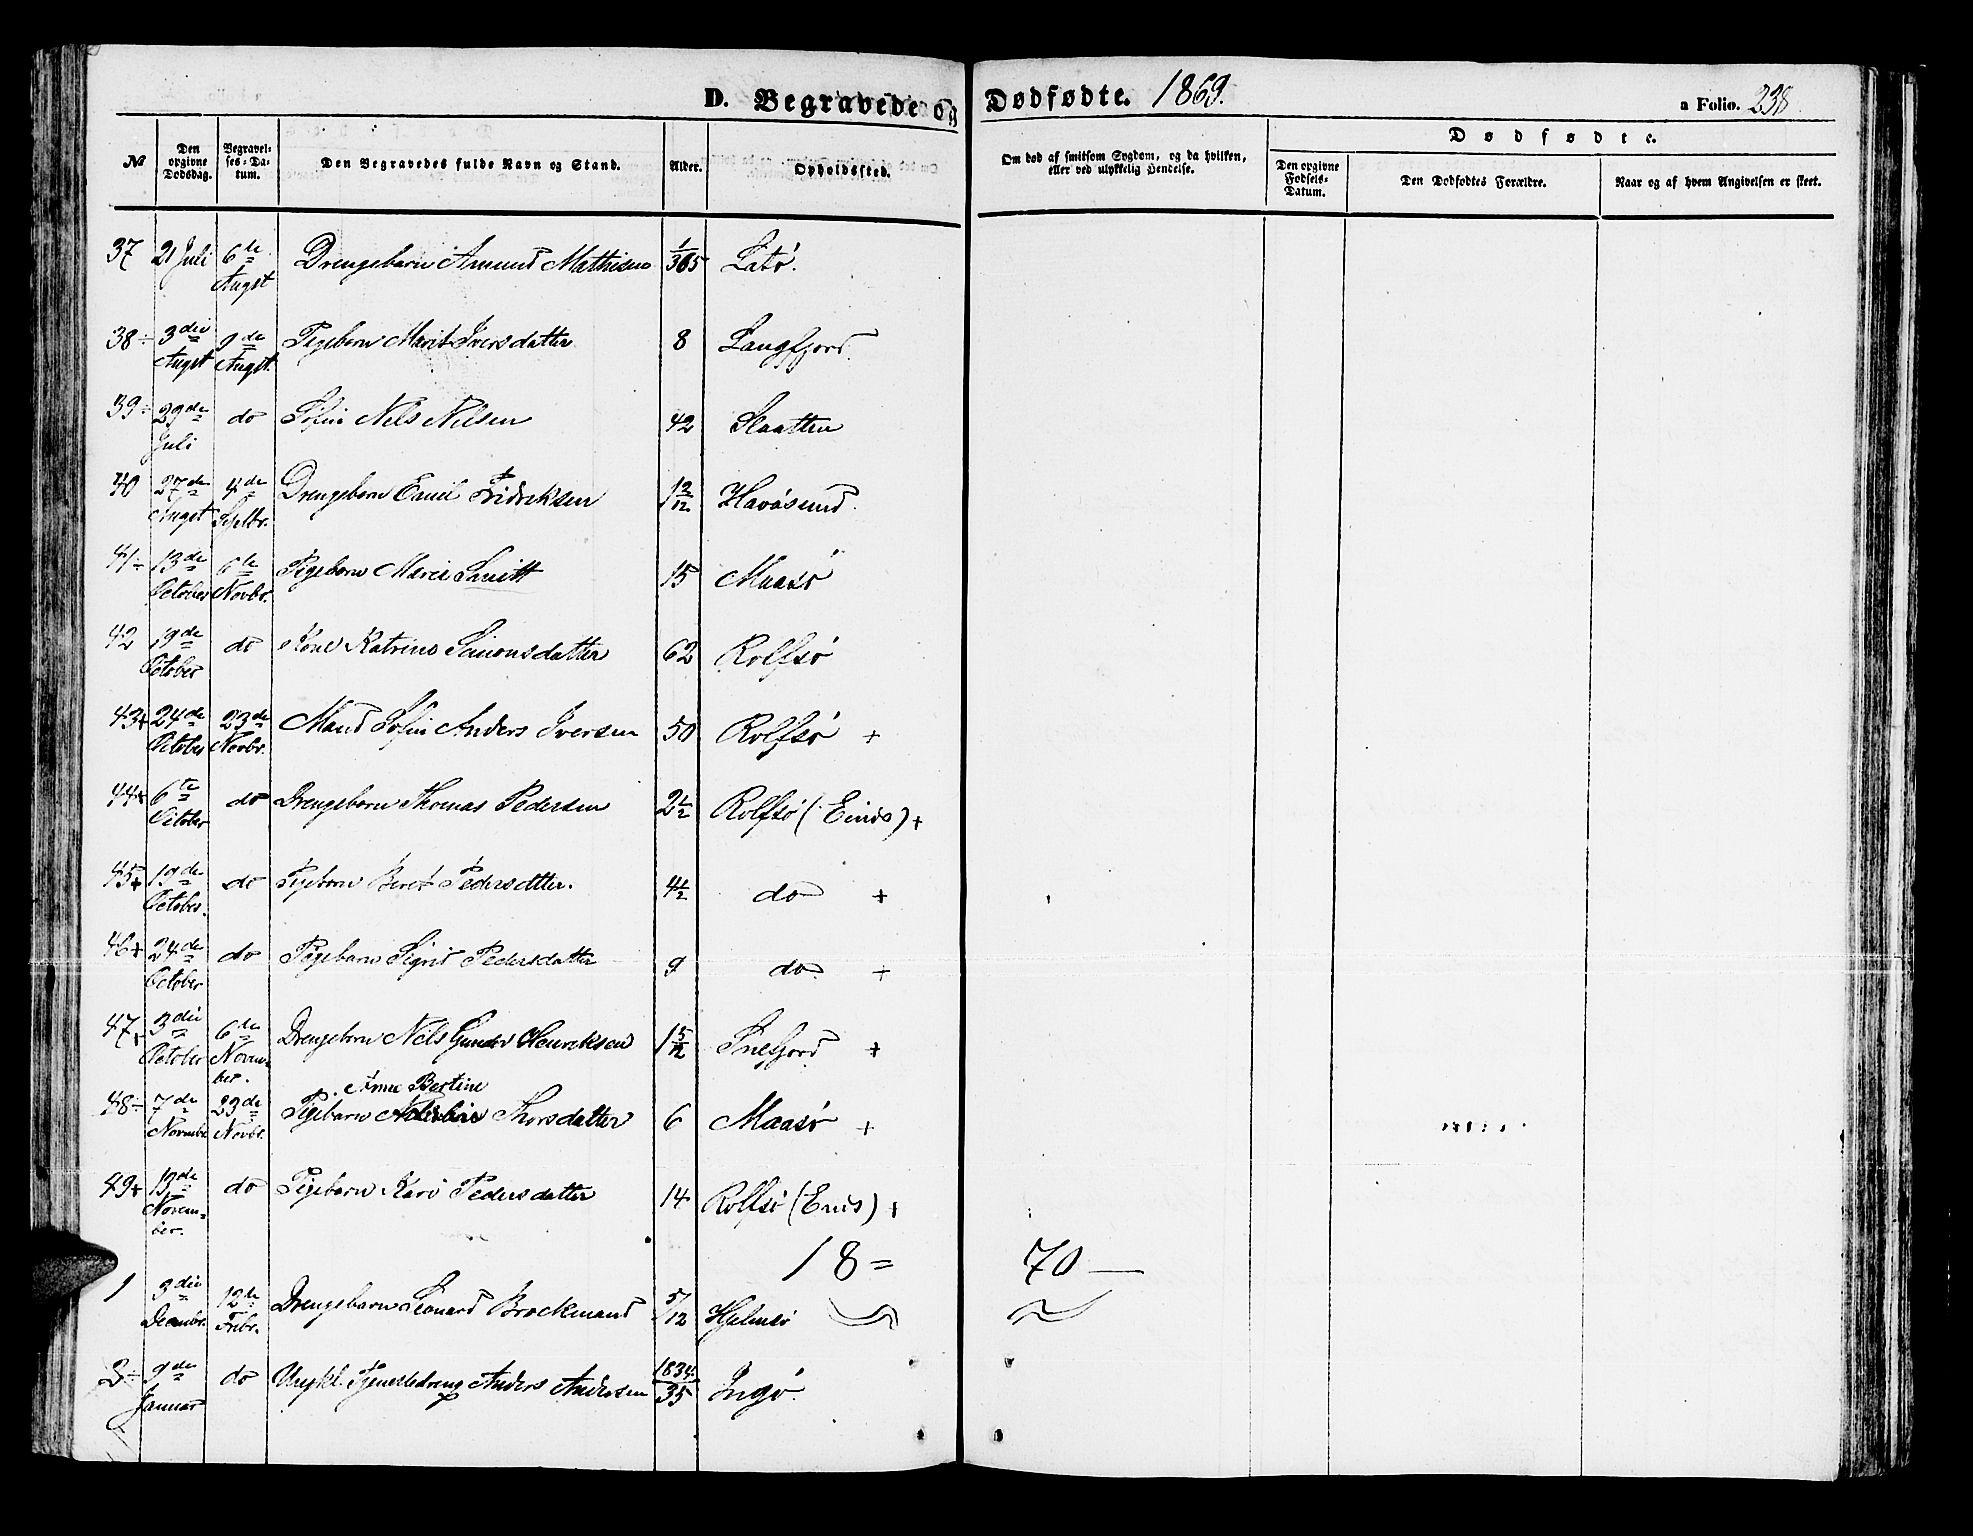 D. Begravede og Dødfødte. 1869.
a Folio. 238.
No
Den opgivne Dødsdag.
Begravelses-Datum.
Den Begravedes fulde Navn og Stand.
Alder.
Opholdssted.
Om død af smitsom Sygdom, og da hvilken, eller ved ulykkelig Hendelse.
Dødfødte.
Den opgivne Fødsels-Datum.
Den Dødfødtes Forældre.
Naar og af hvem Angivelsen er skeet.
37 21 Juli 6te Augst Drengebarn Amund Mathisen 1/365 Latø.
38 ÷ 3die Augst 9de Augst. Pigebarn Marit Iversdatter 8 Langfjord.
39 ÷ 29de Juli do Søfin Nels Nilsen 42 Slaatten
40 27de Augst 4de Septbr. Drengebarn Emil Fridriksen 1 2/12 Havøsund.
41 ÷ 13de October 6te Novbr. Pigebarn Marie Smitt 15 Maasø
42 19de October do Kone Katrine Simonsdatter 62 Rolfsø
43 + 24de October 23de Novbr. Mand Søfin Anders Iversen 50 Rolfsø +
44 + 6te October do Drengebarn Thomas Pedersen 2 1/2 Rolfsø ( ) +
45 + 19de October. do Pigebarn Beret Pedersdatter. 4 1/2 do +
46 + 24de October do Pigebarn Sigrid Pedersdatter 9 do +
47 + 3die October 6te November. Drengebarn Nels Henriksen 1 5/12 Snefjord +
Anne Bertine
48 ÷ 7de Novembr 23de Novbr. Pigebarn Thorsdatter 6 Maasø +
49 + 13de November. do Pigebarn Kari Pedersdatter 14 Rolfsø ( ) +
18 = 70 —
1 3die Decmbr. 12te Febr. Drengebarn Leonard Brockmand 5/12 Hjelmsø
2 ÷ 9de Januar do Ungkl. Tjenestedreng Anders Andersen 1834 35 Ingø.